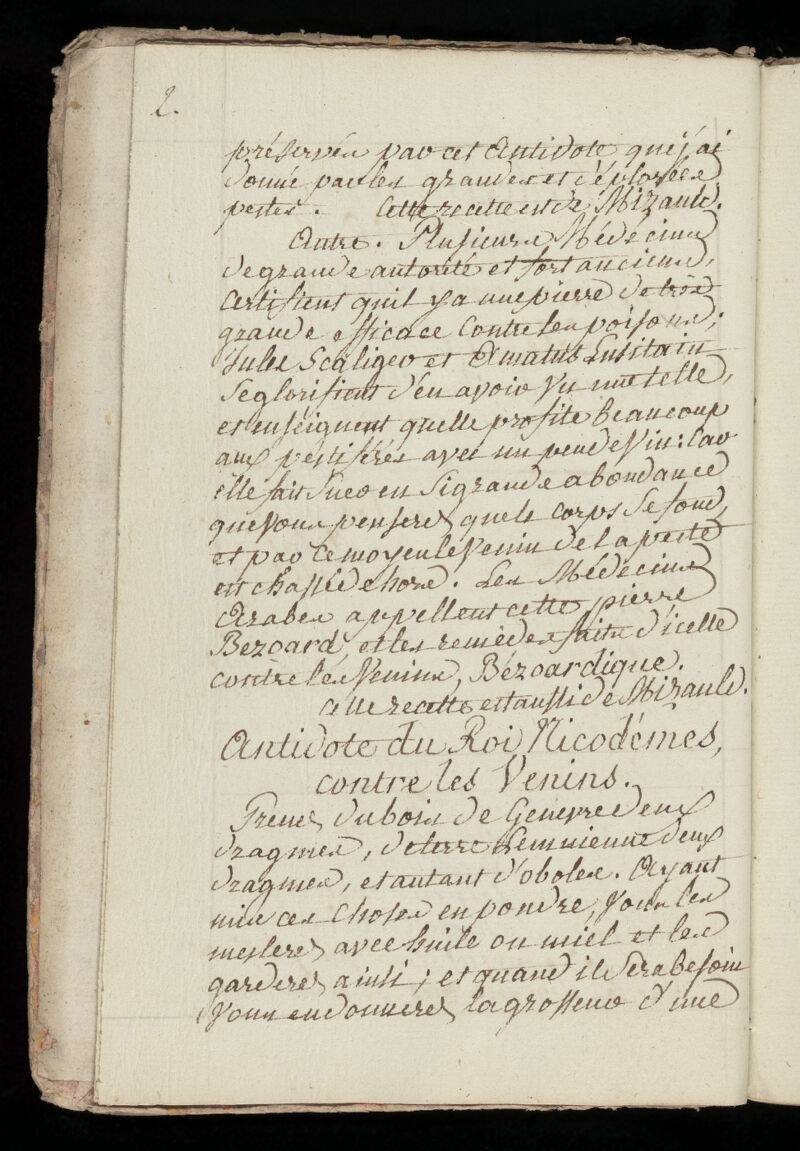 2.
préservés par cet Antidote que j'ai
donné par les grandes et déplorées
pestes. Cette recette est de Mizauld.
Autre. Plusieurs Médécins
de grande autorité et fort anciens,
certifient qu'il y a une pierre de trés
grande efficace contre les poisons;
Jules Scaliger et Amatus Lusitain
se glorifient d'en avoir vu une telle,
et enseignent quelle profite beaucoup
aux pestiférés avec un peu de Vin: Car
elle fait suer en si grande abondance
que vous penserez que le corps se fond,
et par ce moyen le Venin de la peste
est chassé dehors. Les Médécins
Arabes appellent cette pierre
Bezoard, et les remèdes faits d'icelle
contre les Venins, Bézoardique.
cette recette est aussi de Mizauld.
Antidote du Roi Nicodémes,
contre les Venins.
Prenez du bois de Genevre deux
dragmes, de terre Lemnienne deux
dragmes, et autant d'oboles. Ayant
mis ces choses en poudre, vous les
meslerez avec huile ou miel et les
garderez ainsi; et quand il sera besoin
vous en donnerez la grosseur d'une